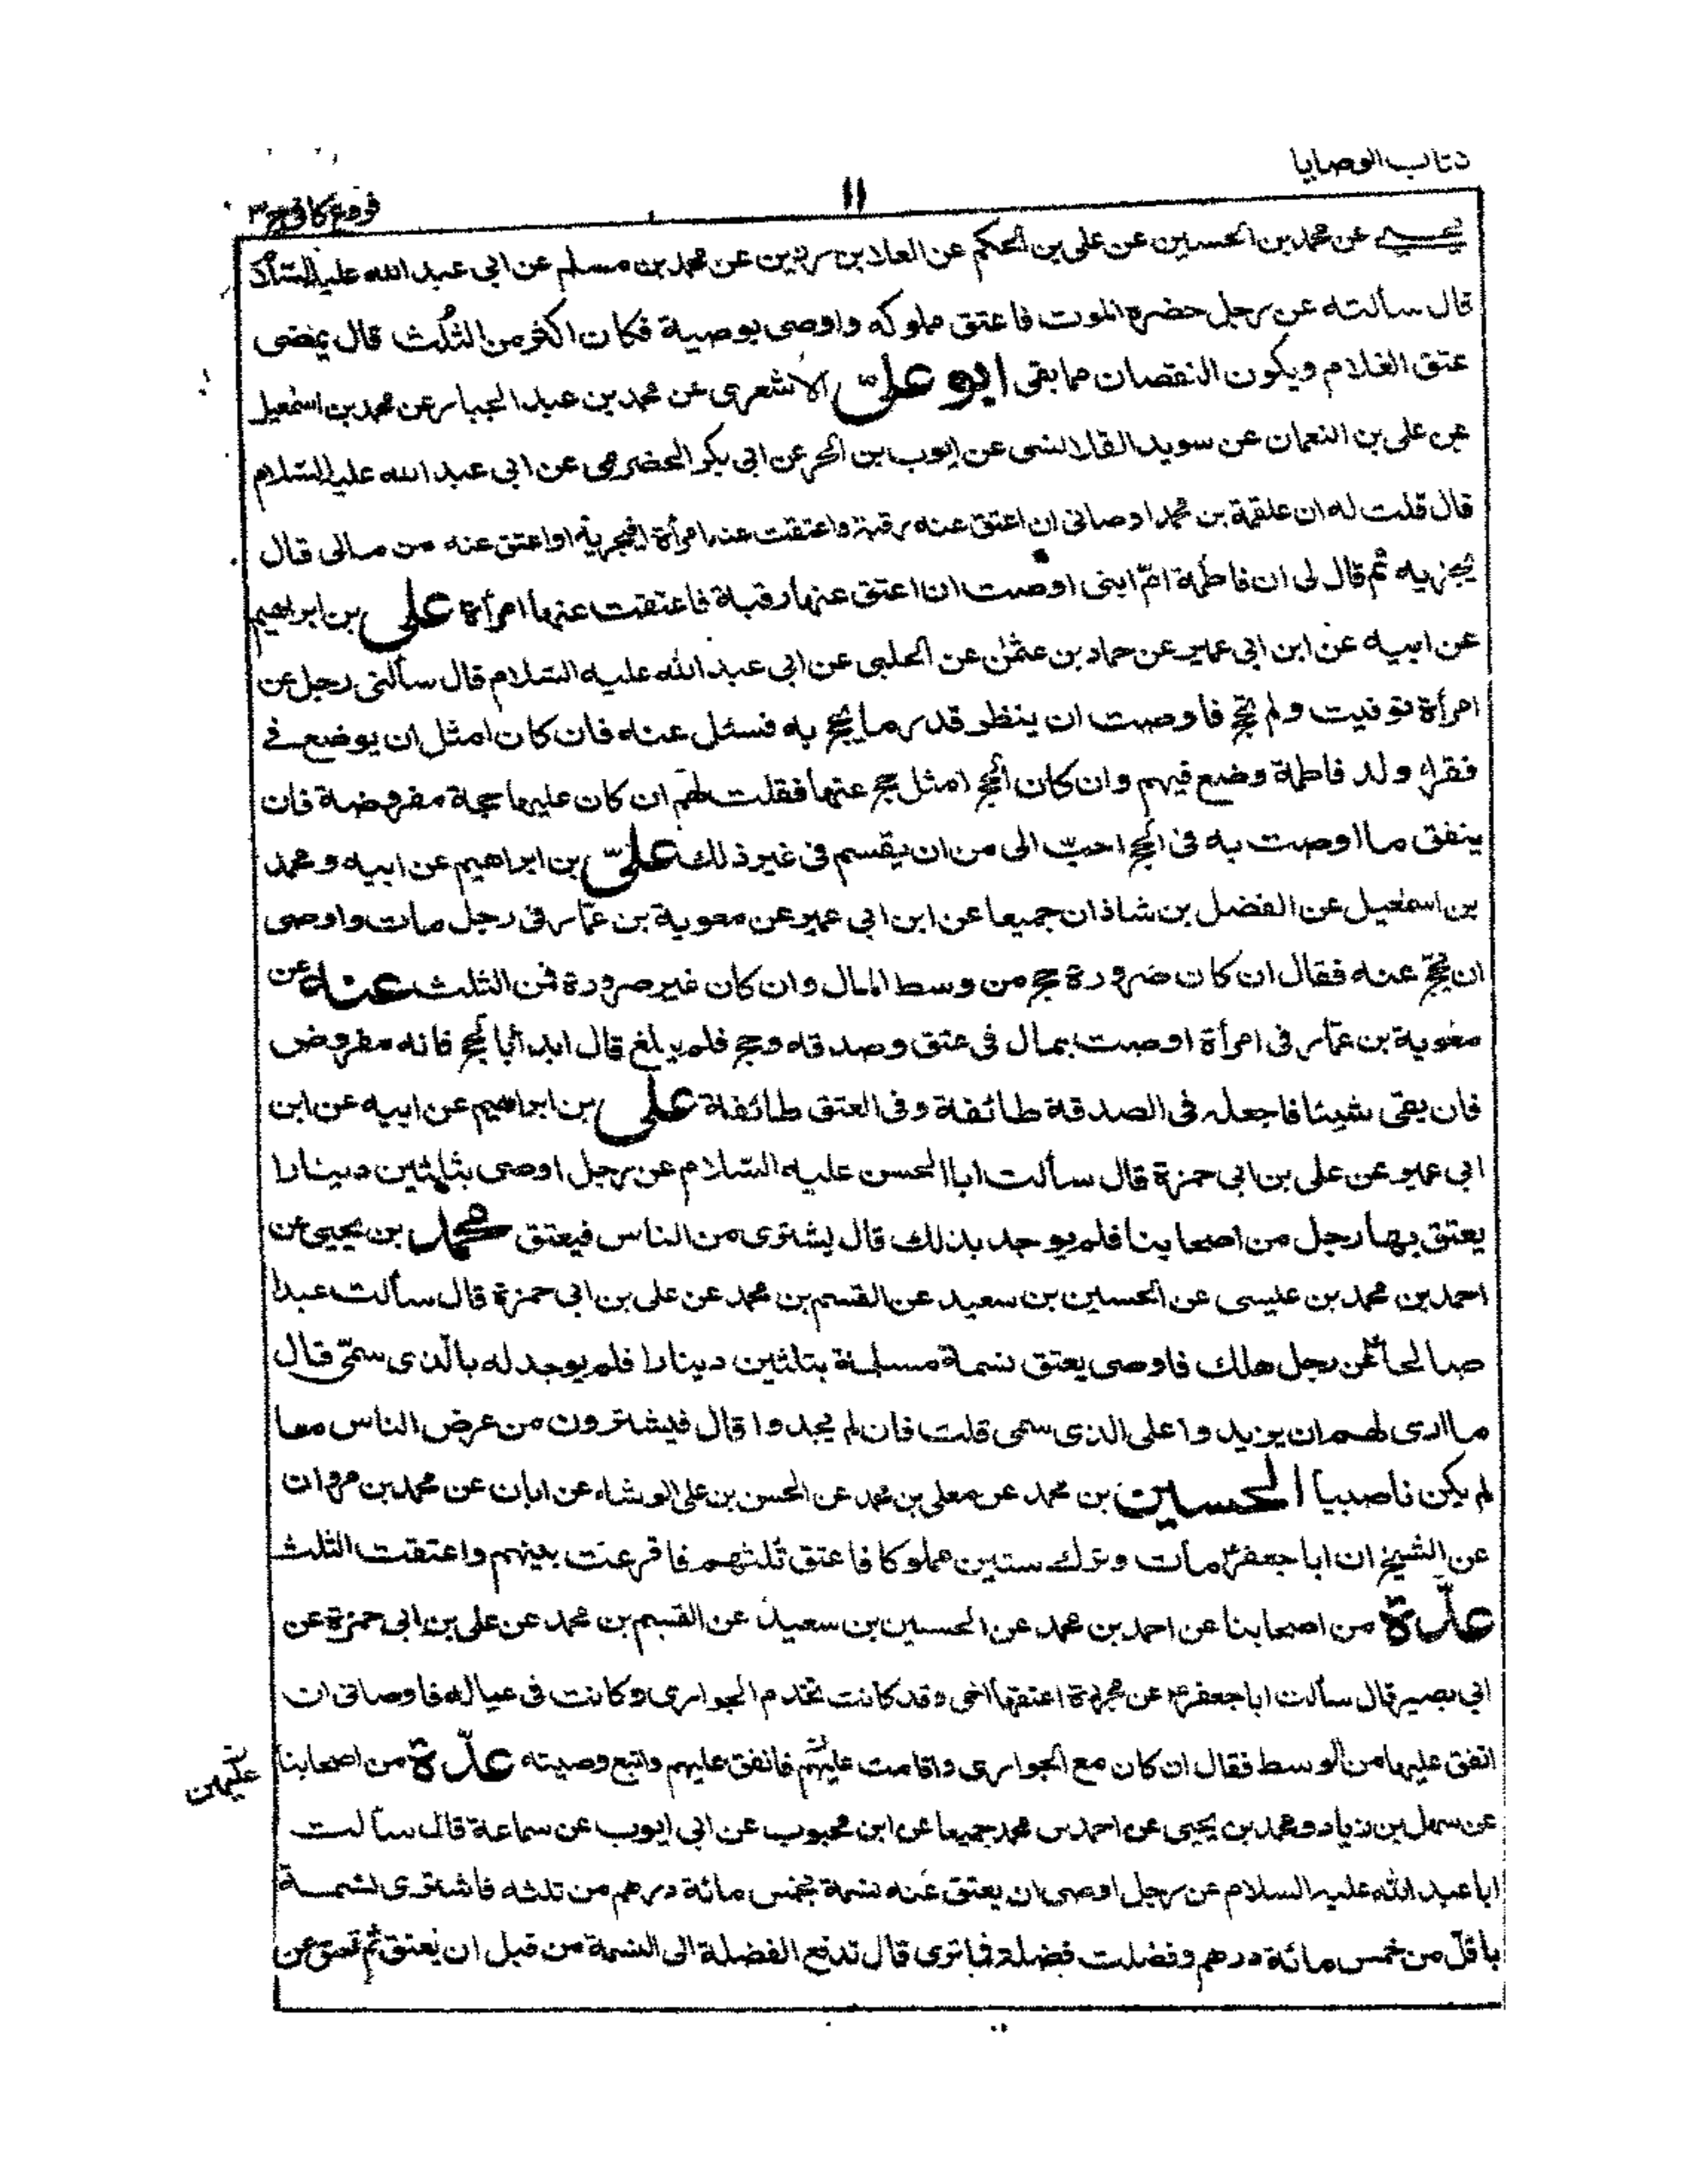 كتاب الوصايا
١١
فروع كافي ج ٣
يحيى عن محمد بن الحسين عن على بن الحكم عن العلا بن رزين عن محمد بن مسلم عن ابى عبد الله عليه السلام
قال سألته عن رجل حضره الموت فاعتق مملوكه واوصى بوصية فكان اكثر من الثلث قال يمضى
عتق الغلام ويكون النقصان مما بقى ابو علىّ الاشعرى عن محمد بن عبد الجبار عن محمد بن اسمعيل
عن على بن النعمان عن سويد القلا النسى عن ايوب بن الحر عن ابى بكر الحضرمى عن ابى عبد الله عليه السلام
قال قلت له ان علقمة بن محمد اوصانى ان اعتق عنه رقبة واعتقت عنه امرأة افيجزيه او اعتق عنه من مالى قال
يجزيه ثم قال لى ان فاطمة امّ ابنى اوصت ان اعتق عنها رقبة فاعتقت عنها امرأة على بن ابراهيم
عن ابيه عن ابن ابى عمير عن حماد بن عثمٰن عن الحلبى عن ابى عبد الله عليه السلام قال سألنى رجل عن
امرأة توفيت ولم تحج فاوصت ان ينظر قدر ما يحج به فسئل عنه فان كان امثل ان يوضع فى
فقراء ولد فاطمة وضع فيهم وان كان الحج امثل حج عنها فقلت لهم ان كان عليها حجة مفروضة فان
ينفق ما اوصت به فى الحج احبّ الى من ان يقسم فى غير ذلك علىّ بن ابراهيم عن ابيه ومحمد
بن اسمٰعيل عن الفضل بن شاذان جميعا عن ابن ابى عمير عن معوية بن عمّار فى رجل مات واوصى
ان يحجّ عنه فقال ان كان ضرورة حج من وسط المال وان كان غير صرورة فمن الثلث عنه عن
معوية بن عمّار فى امرأة اوصت بمال فى عتق وصدقه وحج فلم يبلغ قال ابدأ بالحج فانه مفروض
فان بقى شيئا فاجعله فى الصدقة طائفة وفى العتق طائفة على بن ابراهيم عن ابيه عن ابن
ابى عمير عن على بن ابى حمزة قال سألت ابا الحسن عليه السّلام عن رجل اوصى بثلثين دينارا
يعتق بها رجل من اصحابنا فلم يوجد بذلك قال يشترى من الناس فيعتق محمد بن يحيى عن
احمد بن محمد بن عيسى عن الحسين بن سعيد عن القسم بن محمد عن على بن ابى حمزة قال سألت عبدا
صالحا عن رجل هلك فاوصى يعتق نسمة مسلمة بثلثين دينارا فلم يوجد له بالّذى سمّى قال
ما ارى لهم ان يزيدوا على الذى سمى قلت فان لم يجدوا قال فيشترون من عرض الناس مما
لم يكن ناصبيا الحسين بن محمد عن معلى بن محمد عن الحسن بن على الوشاء عن ابان عن محمد بن مروان
عن الشيخ ان ابا جعفر ع مات وترك ستين مملوكا فاعتق ثلثهم فاقرعت بينهم واعتقت الثلث
عدّة من اصحابنا عن احمد بن محمد عن الحسين بن سعيد عن القسم بن محمد عن على بن ابى حمزة عن
ابى بصير قال سألت ابا جعفر ع عن محررة اعتقها اخى وقد كانت تخدم الجوارى وكانت فى عياله فاوصانى ان
انفق عليها من الوسط فقال ان كان مع الجوارى واقامت عليهم فانفق عليهم واتبع وصيته عدّة من اصحابنا
عليهن
عن سهل بن زياد ومحمد بن يحيى عن احمد بن محمد جميعا عن ابن محبوب عن ابى ايوب عن سماعة قال سألت
ابا عبد الله عليه السلام عن رجل اوصى ان يعتق عنه نسمة بخمس مائة درهم من ثلثه فاشترى نسمة
باقل من خمس مائة درهم وفضلت فضلة فما ترى قال تدفع الفضلة الى النسمة من قبل ان يعتق ثم تعتق عن